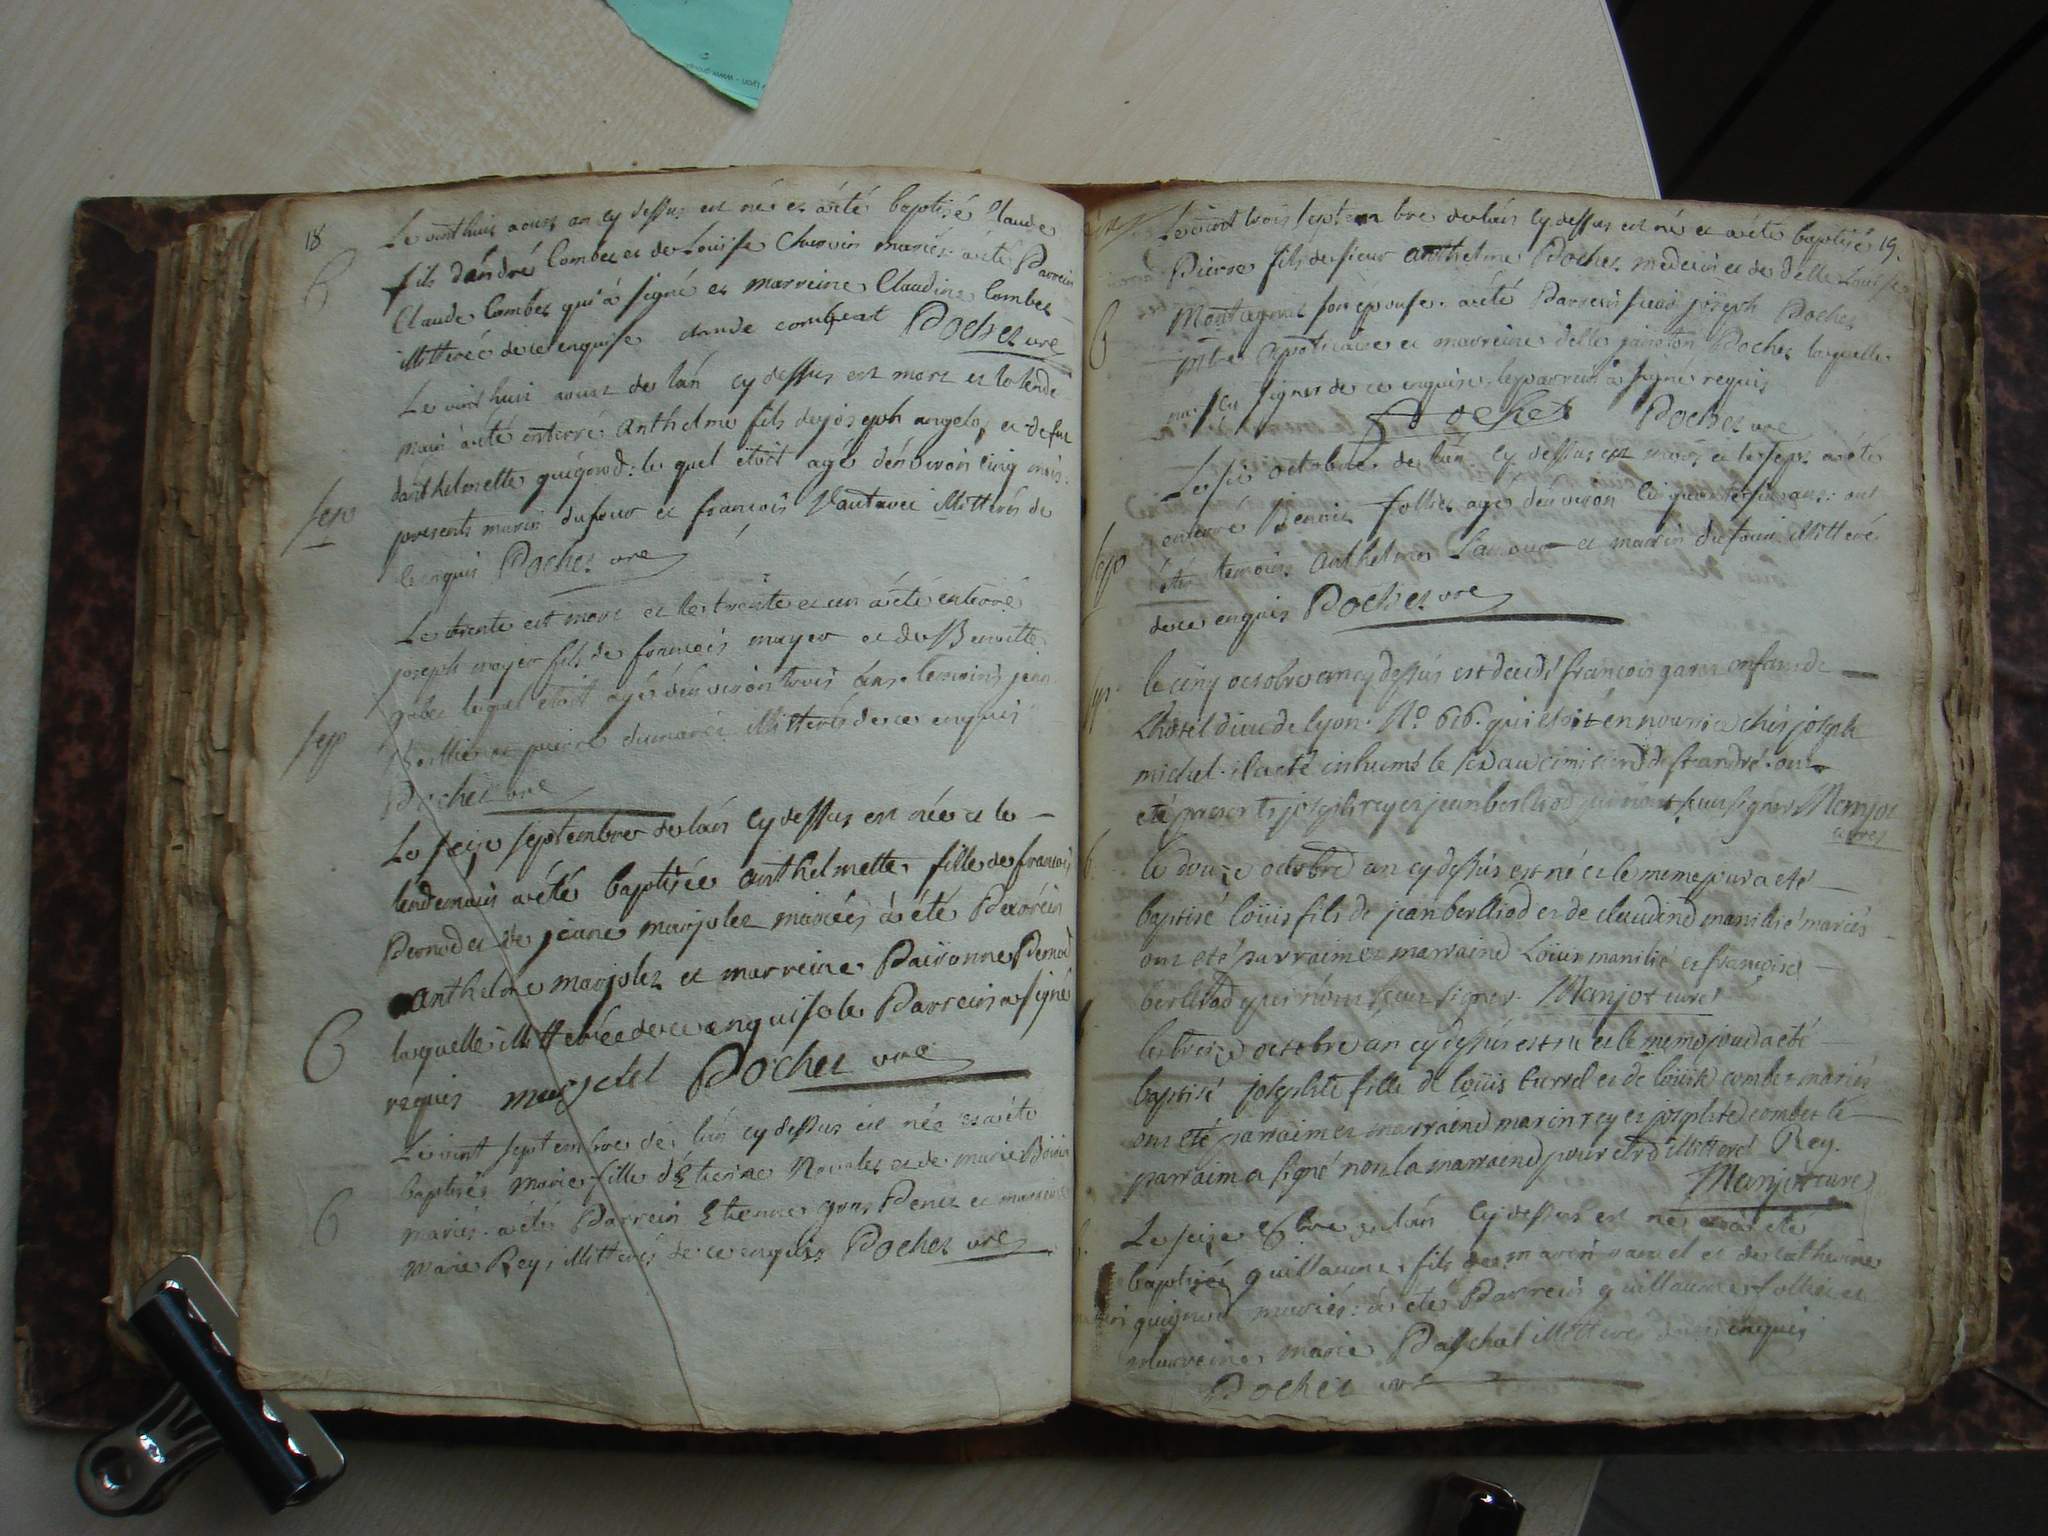 18
Le vint huit aoust an cy dessus est né et a été baptisé Claude
fils d'andré Combet et de Louise Chervin mariés a été Parrein
Claude Combet qui à signé et marreine Claudine Combet
illitteré de ce enquise claude combeat Pochet vre
Le vint huit aoust de l'an cy dessus est mort et le lende
main à été enterré anthelme fils de joseph angelot et de fue
d'anthelmette guigard: le quel étoit agé d'énviron cinq mois.
presents marin dufour et francois Vautaret illitterés de
ce enquis Pochet vre
Le trente est mort et le trente et un a été enterré
joseph mayer fils de francois mayer et de Benoitte
lequel étoit agé d'énviron trois ans. temoins jean
et pierre dumaré illitterés de ce enquis
Pochet vre
Le seize septembre de l'an cy dessus est née et le
lendemain a été baptisée anthelmette fille de francois
Pernod et de jeane marjolet mariés à été Parrein
anthelme marjolet et marreine Pairone Pernod
laquelle illitterée de ce enquise le Parrein a signé
requis marjolet Pochet vre
Le vint septembre de l'an cy dessus est née et a été
baptisée marie fille d'Etienne et de marie
mariés. a été Parrein Etienne gros Penet et marreine
marie Rey, illitterés de ce enquis Pochet vre
Le vint trois septembre de l'an cy dessus est né et a été baptisé 19.
Pierre fils de sieur anthelme Pochet medecin et de delle Louise
Montagnat son epouse. a été Parrein sieur joseph Pochet
mtre apoticaire et marreine delle janeton Pochet laquelle
n'a su signer de ce enquise. le parrein à signé requis
Pochet Pochet vre
Le six octobre de l'an cy dessus est mort et le sept a été
enterré Benoit follier agé d'énviron cinquante six ans: ont
été temoins anthelme et marin dufour illitteré
de ce enquis Pochet vre
le cinq octobre an cy dessus est decedé francois garin enfant de
L'hotel dieu de lyon. No. 616. qui etoit en nourrice chés joseph
michel. il a eté inhumé le six au cimitiere de st andré. ont
eté presents joseph rey et jean berlliod qui n'ont sçeu signer Manjot
curé
le douze octobre an cy dessus est né et le meme jour a eté
baptisé loüis fils de jean berlliod et de claudine manilié mariés
ont eté parraim et marraine Loüis manilié et francoise
berlliod qui n'ont sçeu signer. Manjot curé
le treize octobre an cy dessus est né et le meme jour a eté
baptisé josephte fille de loüis turrel et de loüise combet mariés
ont eté parraim et marraine marin rey et josephte combet le
parraim a signé non la marraine pour etre illitteré Rey.
Manjot curé
Le seize 8bre de l'an cy dessus est né et à été
baptisé guillaume fils de marin et de catherine
guignard mariés: à été Parrein guillaume follier et
marreine marie Paschal illitterés de ce enquis
Pochet vre